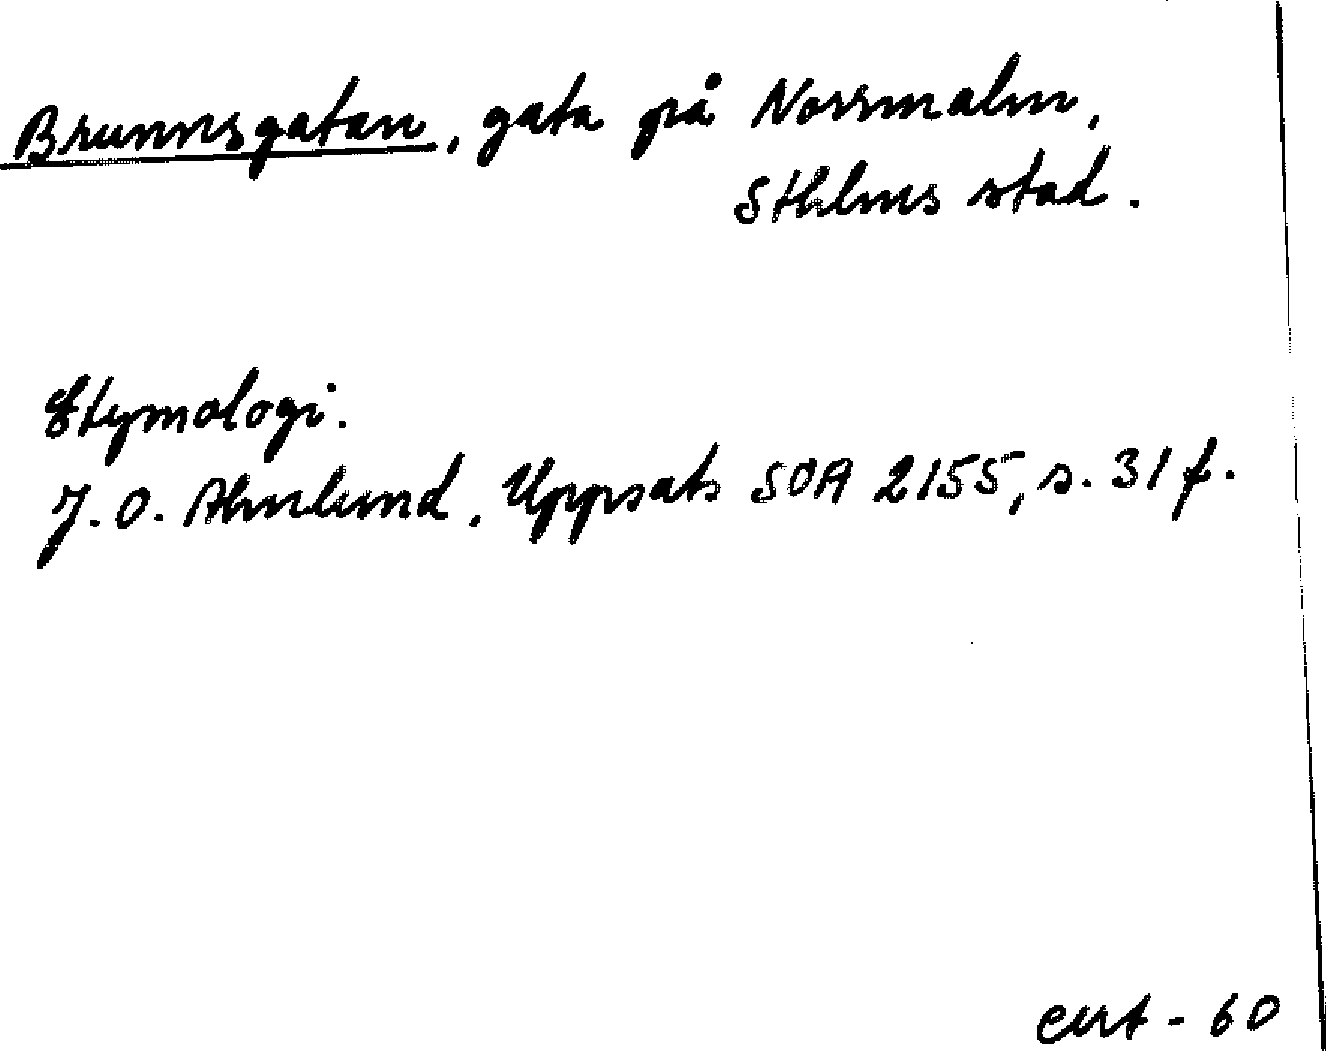 Brunnsgatan, gata på Norrmalm,
Sthlms stad.
Etymologi.
J. O. Almlund, Uppsats SOA 2155, s. 31 f.
- 60